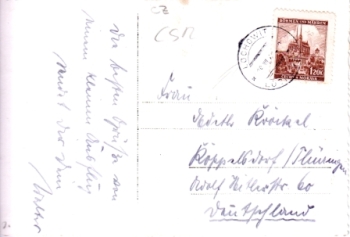 Die besten Grüße von
einem kleinen Ausflug
sendet Dir Dein
Vater
CZ
CSR
BÖHMEN UND MÄHREN
1.20K
Frau
Kröckel
Köppelsdorf/Thüringen
Adolf Hitlerstr 60
Deutschland